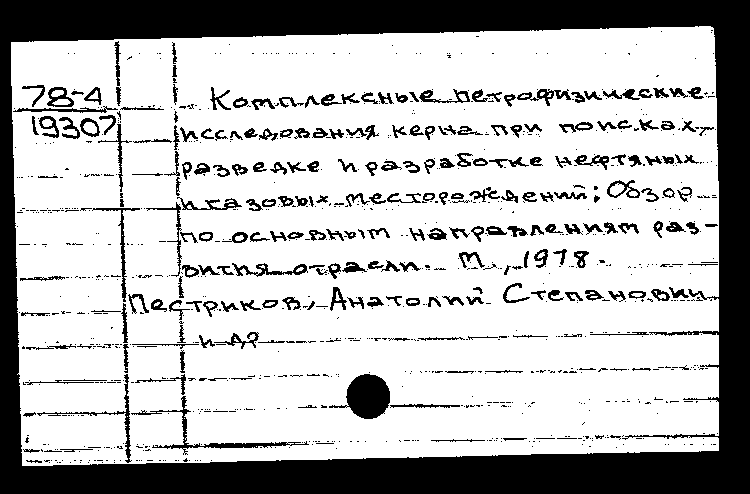 78-4
19307
Комплексные петрофизические
исследования керна при поисках,
разведке и разработке нефтяных
и газовых месторождений; Обзор
по основным направлениям раз-
вития отрасли. М., 1978.
Пестриков, Анатолий Степанович
и др